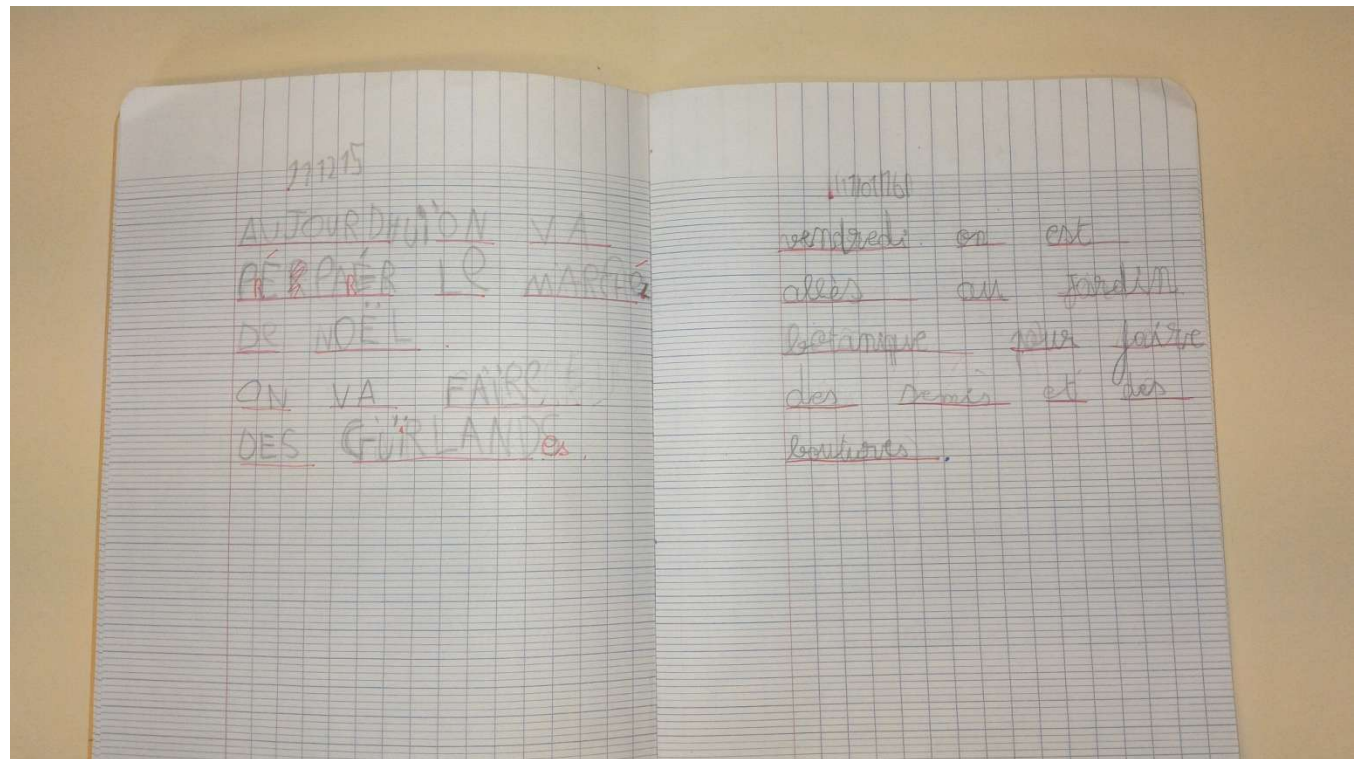 11 12 15
AUJOURDHUÏ ON VA
PRÉPARER LE MARCHÉ
DE NOËL.
ON VA FAÏRE
DES GUÏRLANDES.
vendredi on est
allés au jardin
botanique pour faire
des semis et des
boutures.